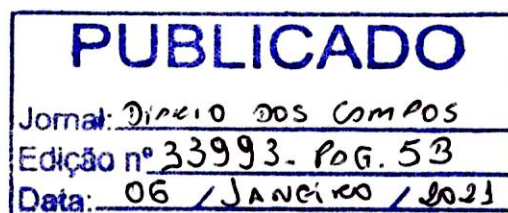 PUBLICADO
Jornal: DIÁRIO DOS CAMPOS
Edição nº 33993. PAG. 5B
Data: 06 / JANEIRO / 2021